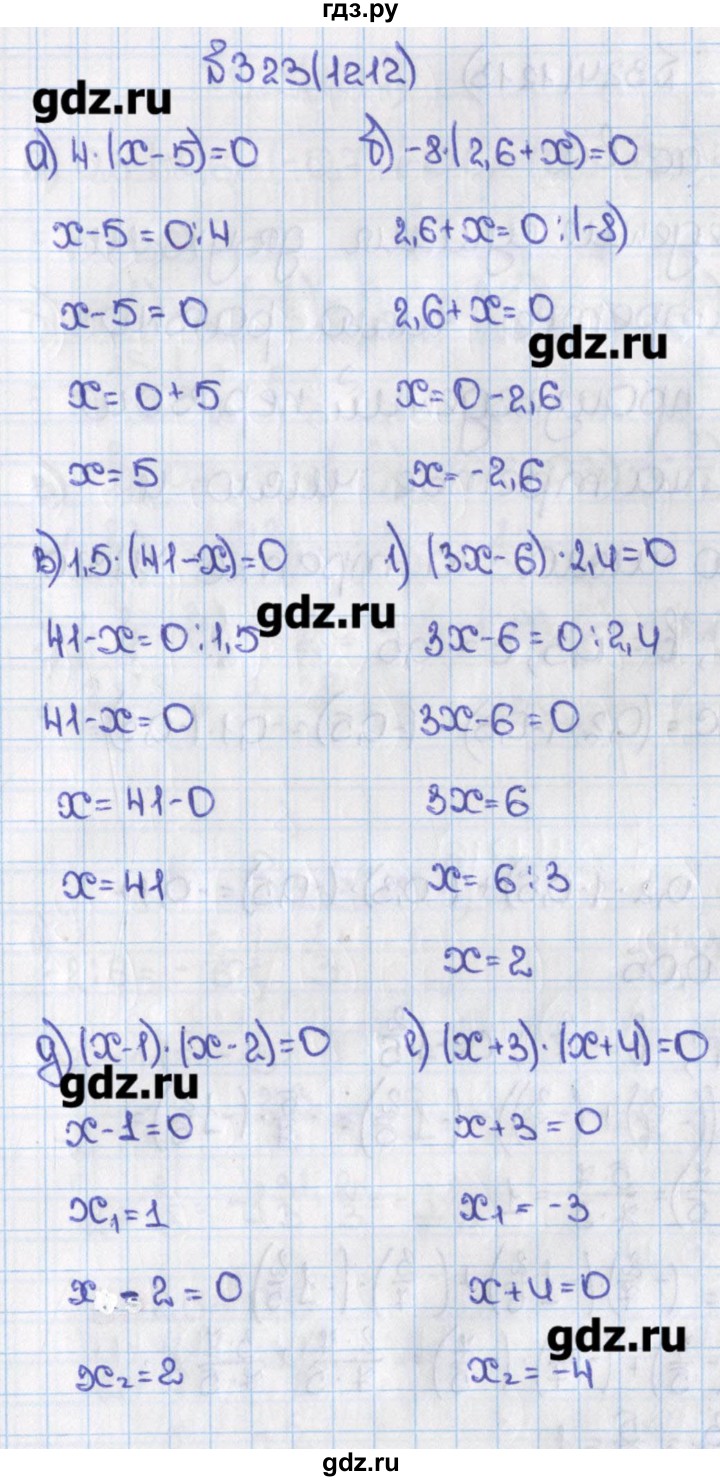 гдз.ру
№323(1212)
gdz.ru
а) 4·(x-5)=0
x-5=0:4
x-5=0
x=0+5
x=5
б) -8·(2,6+x)=0
2,6+x=0:(-8)
2,6+x=0
gdz.ru
x=0-2,6
x=-2,6
в) 1,5·(41-x)=0
gdz.ru
41-x=0:1,5
41-x=0
x=41-0
x=41
г) (3x-6)·2,4=0
3x-6=0:2,4
3x-6=0
3x=6
x=6:3
x=2
д) (x-1)·(x-2)=0
gdz.ru
x-1=0
x₁=1
x-2=0
x₂=2
е) (x+3)·(x+4)=0
x+3=0
x₁=-3
x+4=0
gdz.ru
x₂=-4
gdz.ru